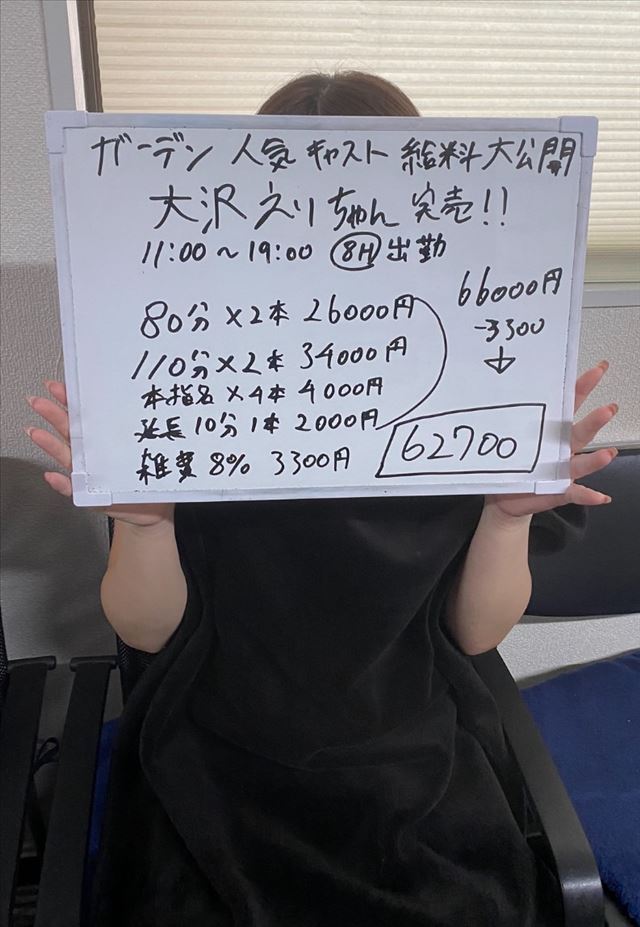 ガーデン 人気 キャスト 給料大公開
大沢えりちゃん 完売!!
11:00〜19:00 8H 出勤
80分×2本 26000円
110分×2本 34000円
本指名×4本 4000円
延長10分1本 2000円
雑費 8% 3300円
66000円
-3300
↓
62700